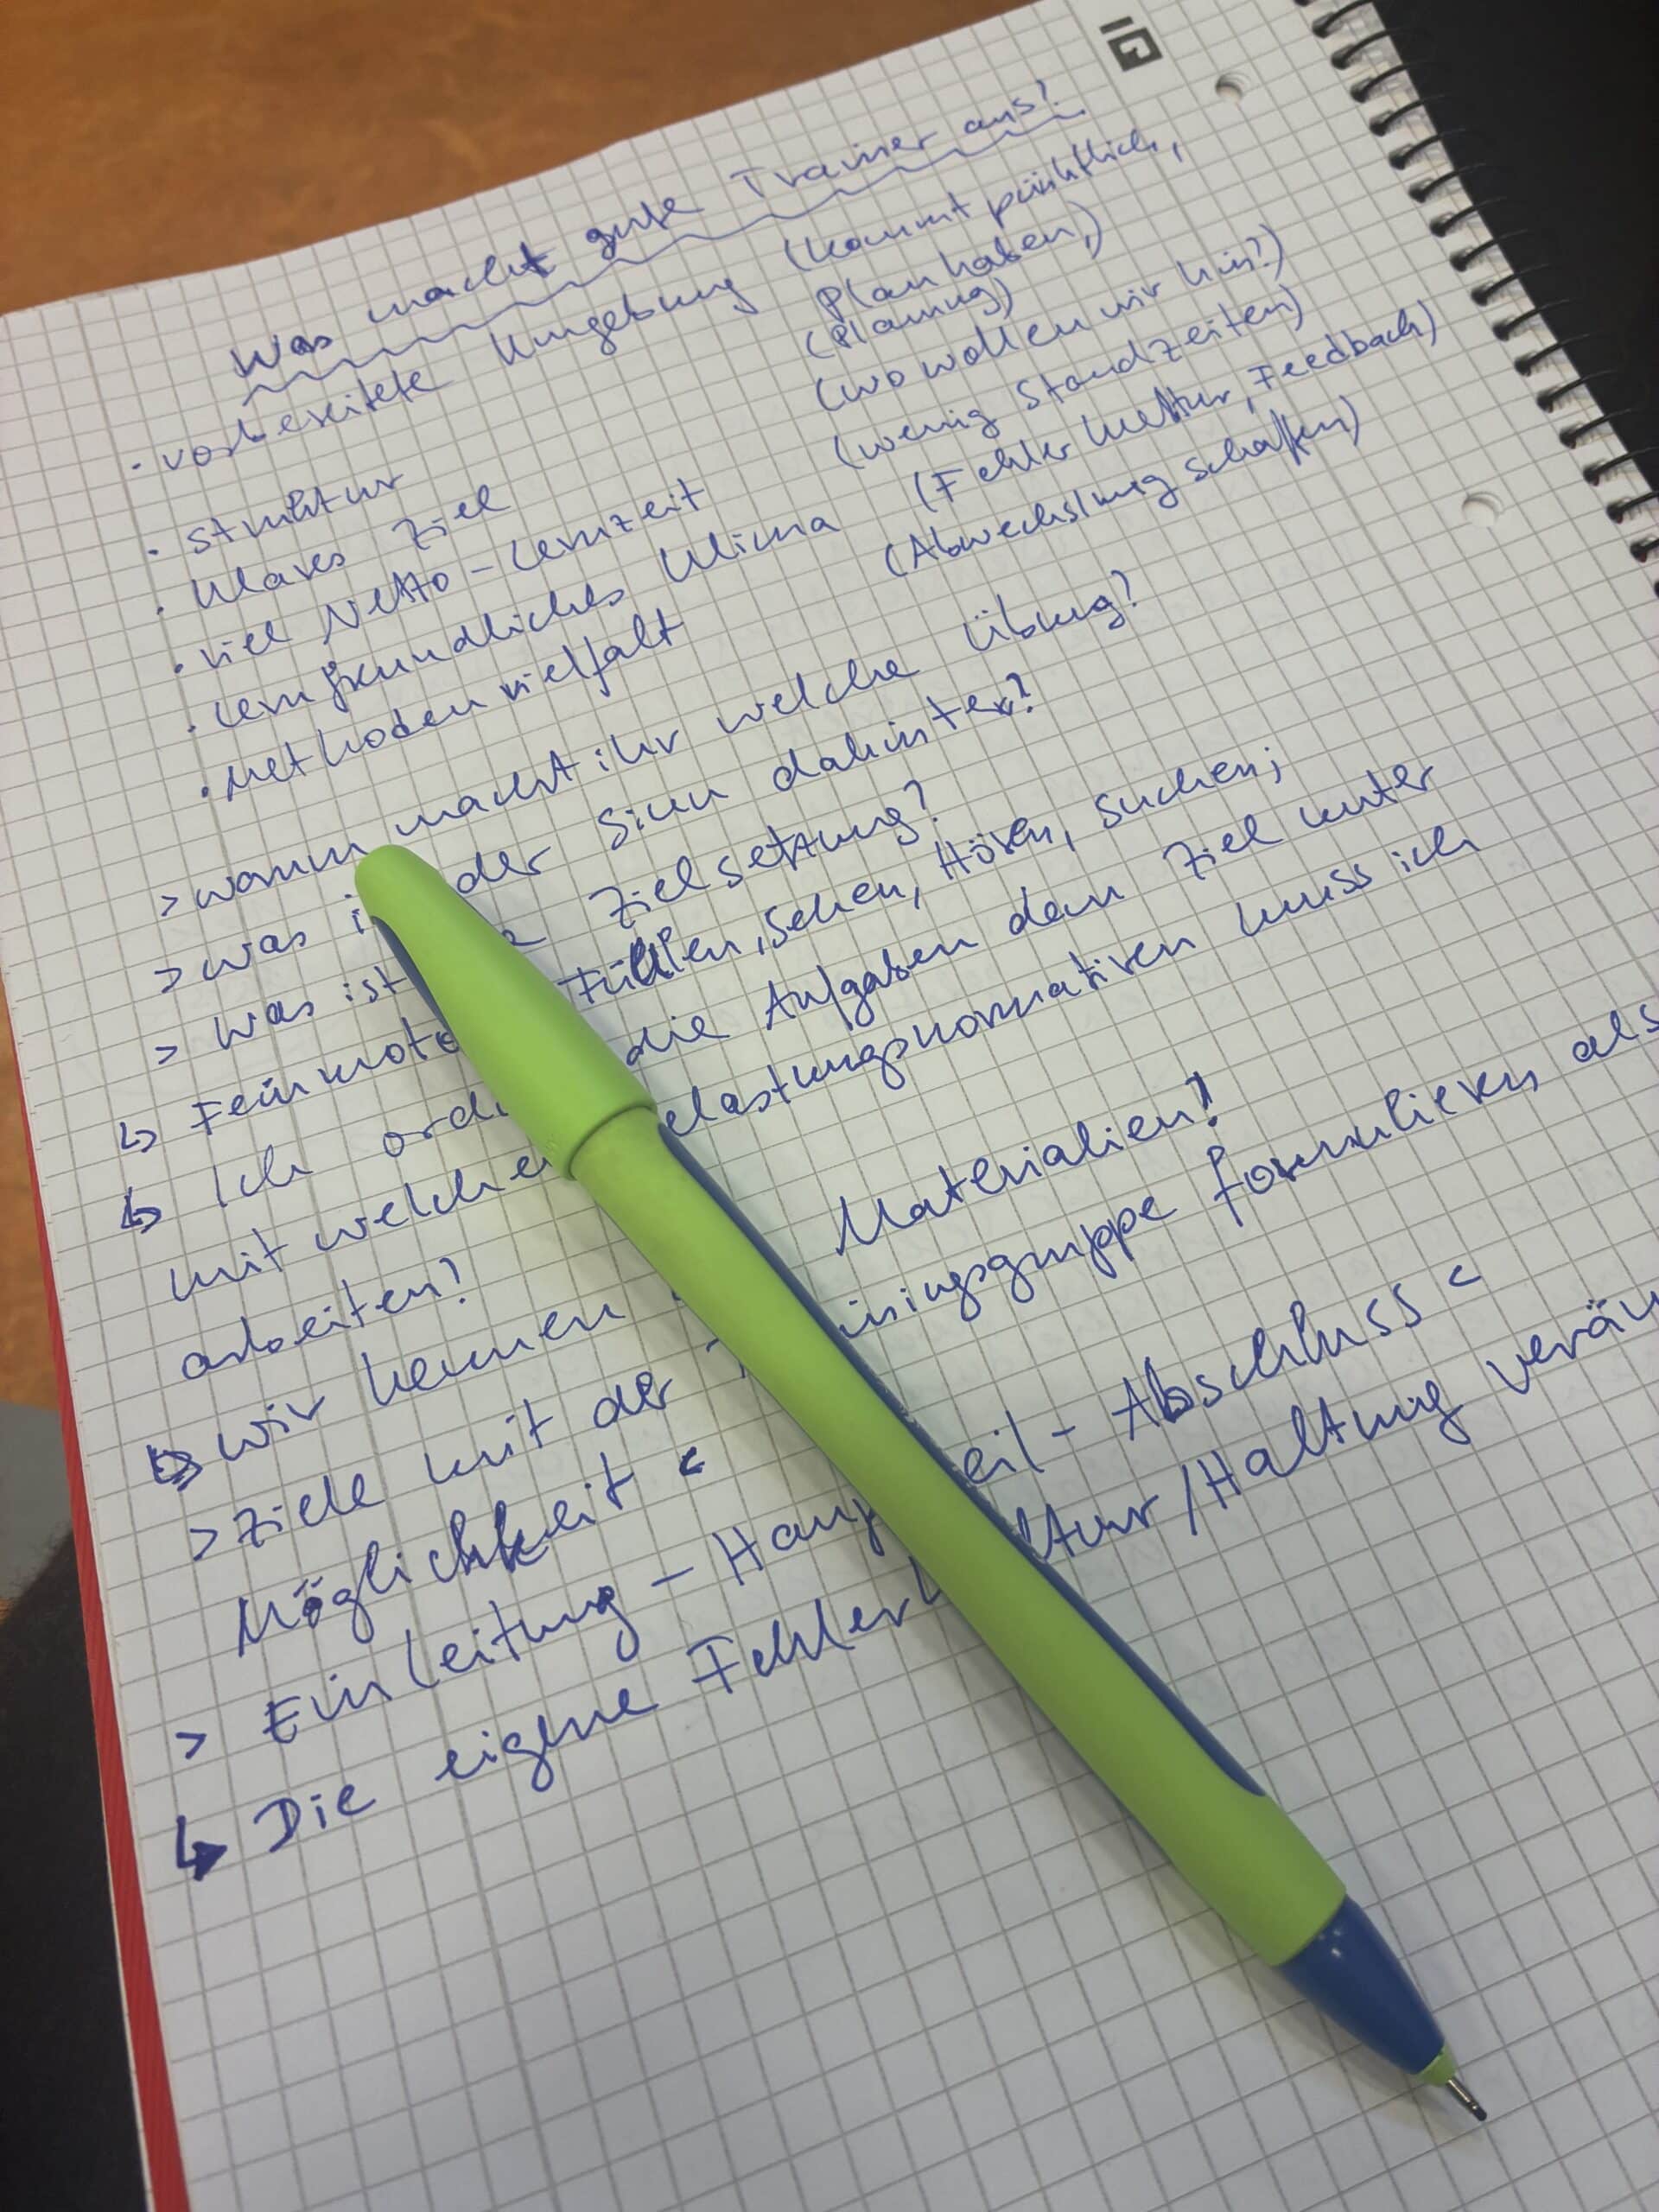 Was macht gute Trainer aus?
· vorbereitete Umgebung (kommt pünktlich,
Plan haben,)
· Struktur (Planung)
· klares Ziel (wo wollen wir hin?)
· viel Netto-Lernzeit (wenig Standzeiten)
· lernfreundliches Klima (Fehlerkultur, Feedback)
· Methodenvielfalt (Abwechslung schaffen)
> warum macht ihr welche Übung?
> was der Sinn dahinter?
> was ist Zielsetzung?
↳ Feinmoto Fühlen, Sehen, Hören, suchen;
↳ Ich die Aufgaben dem Ziel unter
mit welchen elastungsnormativen muss ich
arbeiten?
↳ wir kennen Materialien!
> Ziele mit der iningsgruppe formulieren als
Möglichkeit <
> Einleitung - Haup eil - Abschluss <
↳ Die eigene Fehlerk ltur/Haltung verän